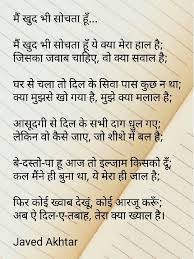 मैं खुद भी सोचता हूँ...
मैं खुद भी सोचता हूँ ये क्या मेरा हाल है;
जिसका जवाब चाहिए, वो क्या सवाल है;
घर से चला तो दिल के सिवा पास कुछ न था;
क्या मुझसे खो गया है, मुझे क्या मलाल है;
आसूदगी से दिल के सभी दाग धुल गए;
लेकिन वो कैसे जाए, जो शीशे में बल है;
बे-दस्तो-पा हू आज तो इल्जाम किसको दूँ;
कल मैंने ही बुना था, ये मेरा ही जाल है;
फिर कोई ख्वाब देखूं, कोई आरजू करूँ;
अब ऐ दिल-ए-तबाह, तेरा क्या ख्याल है।
Javed Akhtar